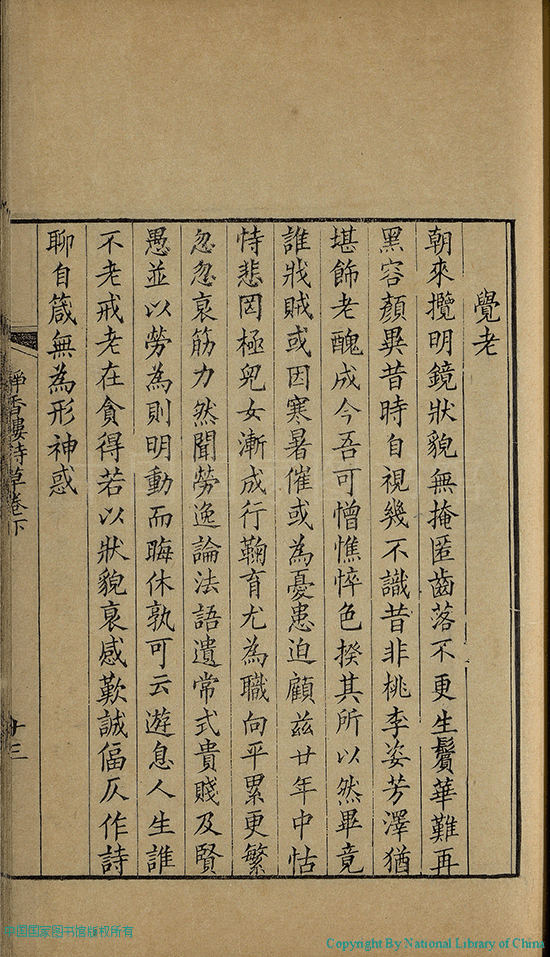 覺老
朝來攬明鏡狀貌無掩匿齒落不更生鬢華難再
黑容顏異昔時自視幾不識昔非桃李姿芳澤猶
堪飾老醜成今吾可憎憔悴色揆其所以然畢竟
誰戕賊或因寒暑催或為憂患迫顧茲廿年中怙
恃悲罔極兒女漸成行鞠育尤為職向平累更繁
忽忽衰筋力然聞勞逸論法語遺常式貴賤及賢
愚並以勞為則明動而晦休孰可云遊息人生誰
不老戒老在貪得若以狀貌衰感歎誠偪仄作詩
聊自箴無為形神惑
靜香樓詩草卷下
十三
中国国家图书馆版权所有
Copyright By National Library of China